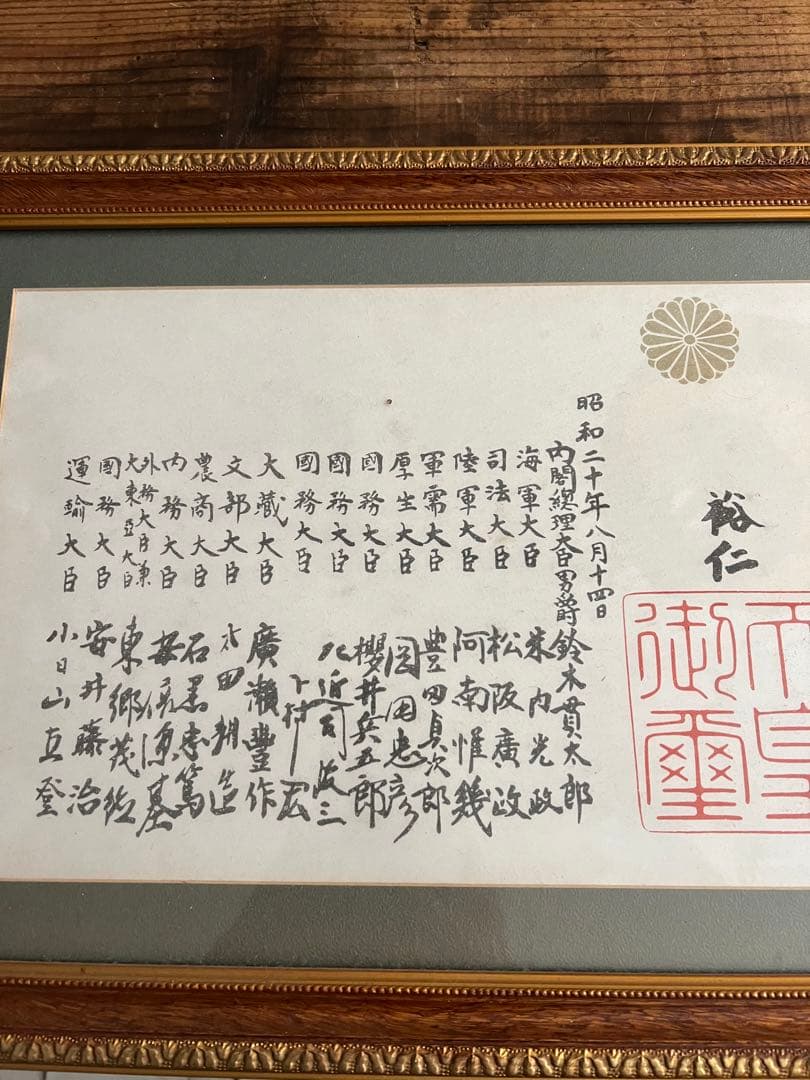 裕仁
天皇
御璽
昭和二十年八月十四日
内閣總理大臣男爵 鈴木貫太郎
海軍大臣 米内光政
司法大臣 松阪廣政
陸軍大臣 阿南惟幾
軍需大臣 豊田貞次郎
厚生大臣 岡田忠彦
國務大臣 櫻井兵五郎
國務大臣 左近司政三
國務大臣 下村宏
大藏大臣 廣瀬豐作
文部大臣 太田耕造
農商大臣 石黒忠篤
内務大臣 安倍源基
外務大臣兼
大東亞大臣 東郷茂德
國務大臣 安井藤治
運輸大臣 小日山直登